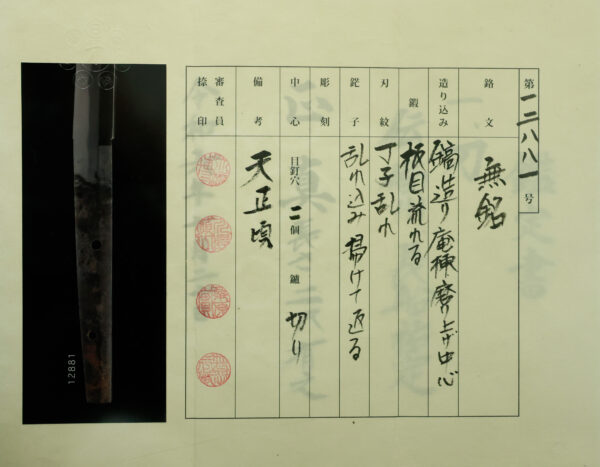 第一二八八一号
銘文 無銘
造り込み 鎬造り庵棟磨り上げ中心
鍛 板目流れる
刃紋 丁子乱れ
鋩子 乱れ込み掃けて返る
彫刻
中心 目釘穴 二個 鑢 切り
備考 天正頃
審査員
捺印
12881